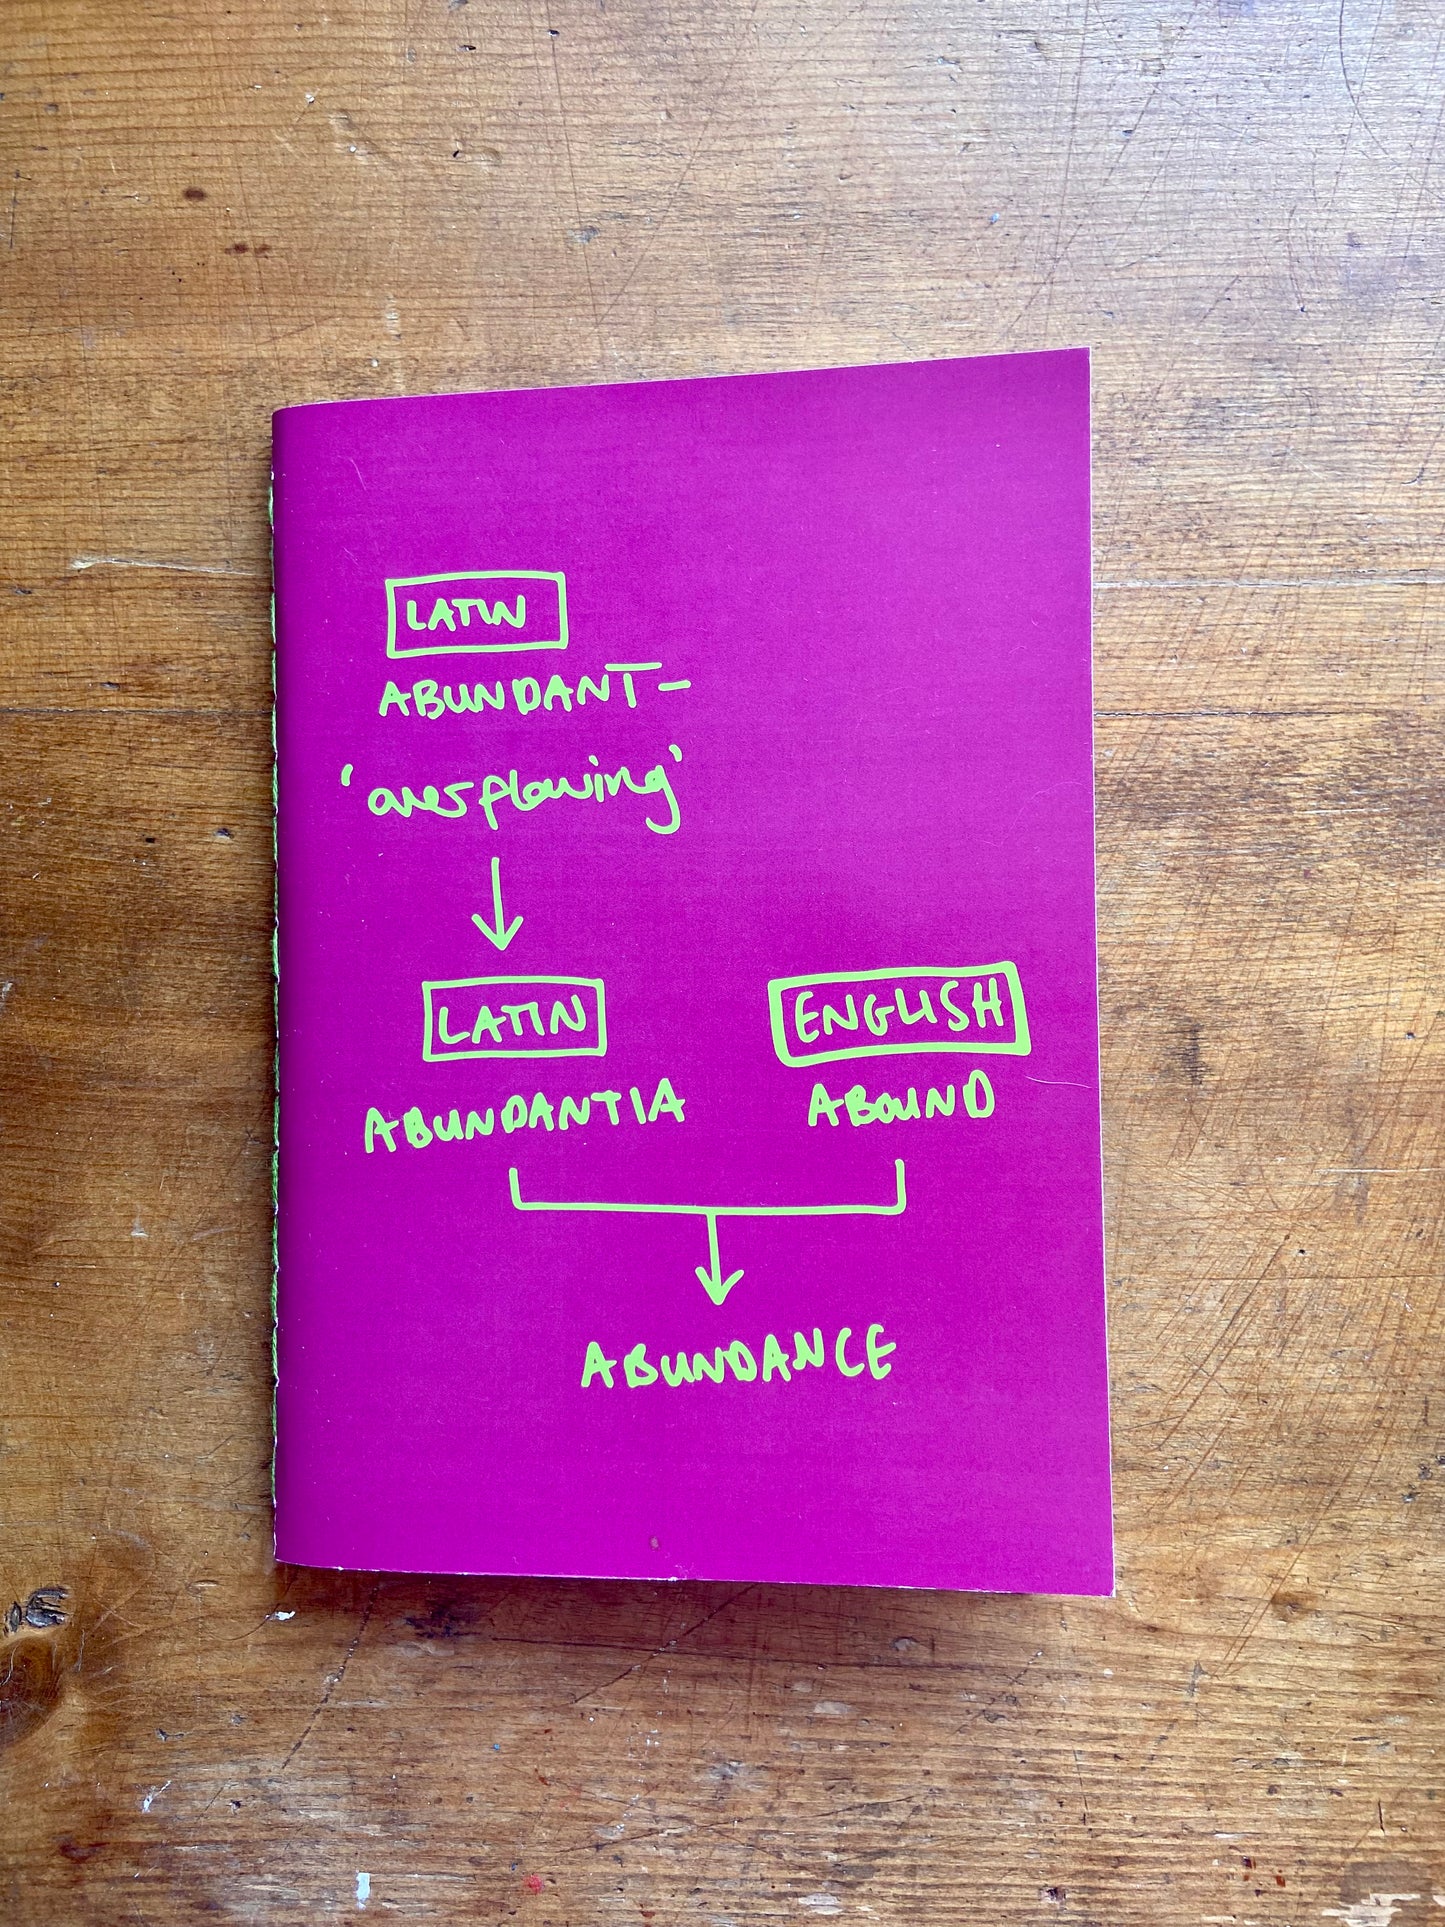 LATIN
ABUNDANT-
'overflowing'
LATIN
ENGLISH
ABUNDANTIA
ABOUND
ABUNDANCE